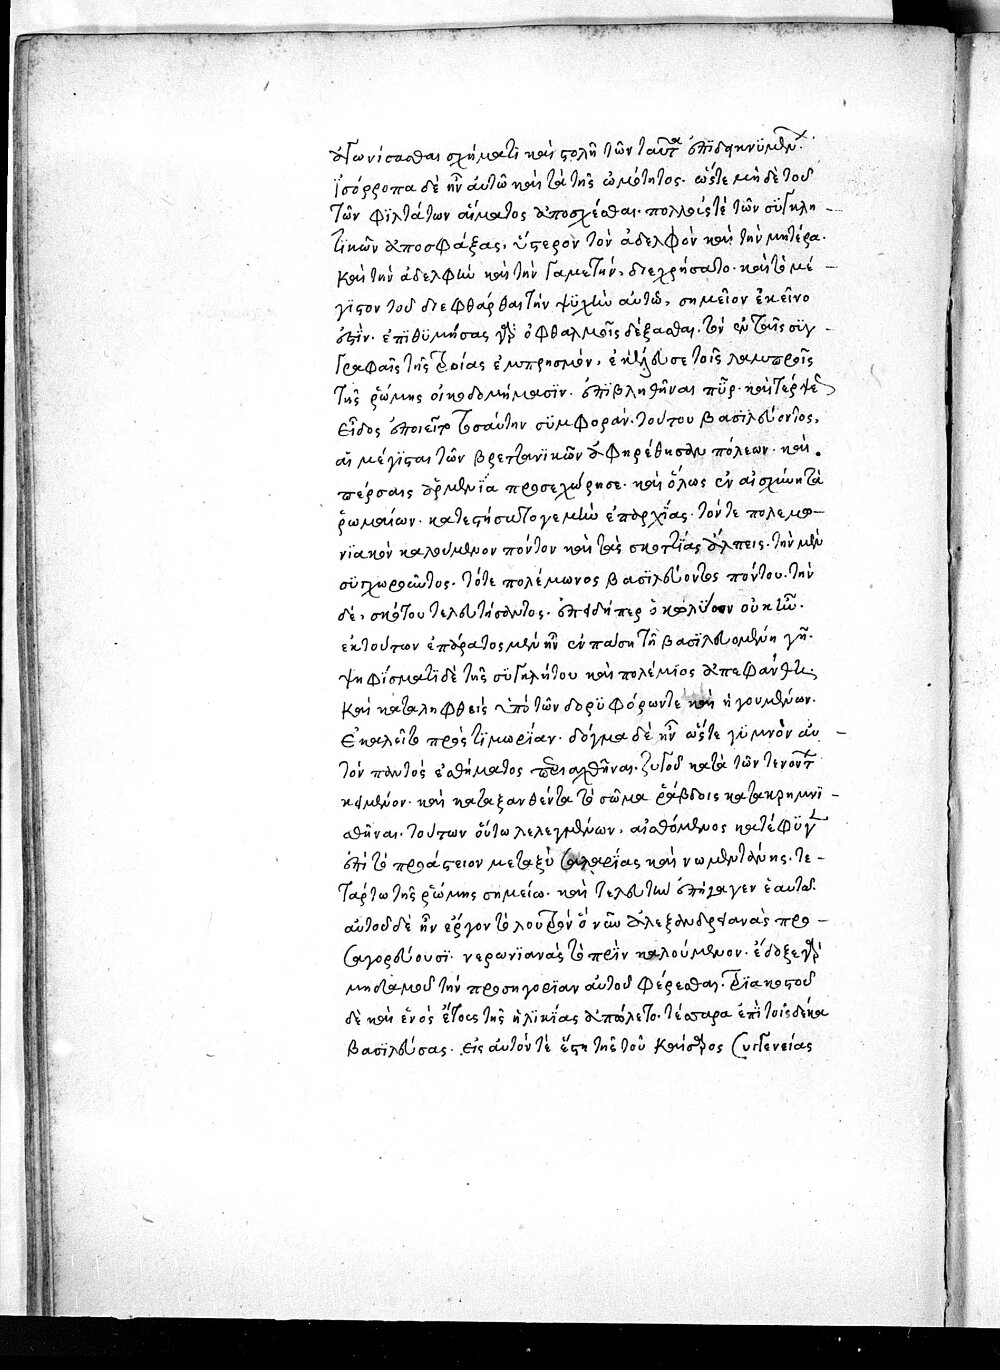 ἀγωνίσασθαι σχήματι καὶ στολῆ τῶν ταῦτα ἐπιδεικνυμένων.
ἰσόρροπα δὲ ἦν αὐτῶ καὶ τὰ τῆς ὠμότητος. ὥστε μὴ δὲ τοῦ
τῶν φιλτάτων αἵματος ἀποσχέσθαι. πολλούς τὲ τῶν συγκλη-
τικῶν ἀποσφάξας, ὕστερον τὸν ἀδελφὸν καὶ τὴν μητέρα.
καὶ τὴν ἀδελφὴν καὶ τὴν γαμετήν, διεχρήσατο. καὶ τὸ μέ-
γιστον τοῦ διεφθάρθαι τὴν ψυχὴν αὐτῶ, σημεῖον ἐκεῖνο
ἐστὶν. ἐπιθυμήσας γὰρ ὀφθαλμοῖς δέξασθαι. τὸν ἐν ταῖς συγ-
γραφαῖς τῆς τροίας ἐμπρησμόν, ἐκέλευσε τοῖς λαμπροῖς
τῆς ῥώμης οἰκοδομήμασιν. ἐπιβληθῆναι πῦρ. καὶ τέρψεως
εἶδος ἐποιεῖτο τοσαύτην συμφοράν. τούτου βασιλεύοντος,
αἱ μέγισται τῶν βρεττανικῶν ἀφηρέθησαν πόλεων. καὶ
πέρσαις ἀρμενία προσεχώρησε. καὶ ὅλως ἐν αἰσχύνη τὰ
ῥωμαίων. κατεστήσατο γε μὴν ἐπαρχίας. τόν τε πολεμω-
νιακὸν καλούμενον πόντον καὶ τὰς σκοττίας ἄλπεις. τὴν μὲν
συγχωροῦντος. τότε πολέμωνος βασιλεύοντος πόντου. τὴν
δὲ, σκότου τελευτήσαντος. ἐπειδήπερ ὁ κωλύσων οὐκ ἦν.
ἐκ τούτων ἐπάρατος μὲν ἦν ἐν πάση τῆ βασιλευομένη γῆ.
ψηφίσματι δὲ τῆς συγκλήτου καὶ πολέμιος ἀπεφάνθη.
καὶ καταληφθεὶς ὑπὸ τῶν δορυφόρων τε καὶ ἡγουμένων.
ἐκαλεῖτο πρὸς τιμωρίαν. δόγμα δὲ ἦν ὥστε γυμνὸν αὐ-
τὸν παντὸς ἐσθήματος περιαχθῆναι. ζυγοῦ κατὰ τῶν τενόντων
κειμένου. καὶ καταξανθέντα τὸ σῶμα ῥάβδοις κατακρημνι-
σθῆναι. τούτων οὕτω λελεγμένων. αἰσθόμενος κατέφυγε
ἐπὶ τὸ προάστειον μεταξὺ σαλαρίας καὶ νωμεντάνης. τε-
τάρτω τῆς ῥώμης σημείω. καὶ τελευτὴν ἐπήγαγεν ἑαυτῶ.
αὐτοῦ δὲ ἦν ἔργον τὸ λουτρόν ὃ νῦν ἀλεξανδριανὰς προ-
σαγορεύουσι. νερωνιανὰς τὸ πρὶν καλούμενον. ἔδοξε γὰρ
μηδαμοῦ τὴν προσηγορίαν αὐτοῦ φέρεσθαι. τριακοστοῦ
δὲ καὶ ἑνὸς ἔτους τῆς ἡλικίας ἀπώλετο. τέσσαρα ἐπὶ τοῖς δέκα
βασιλεύσας. εἰς αὐτόν τὲ ἔστη τῆς τοῦ καίσαρος συγγενείας